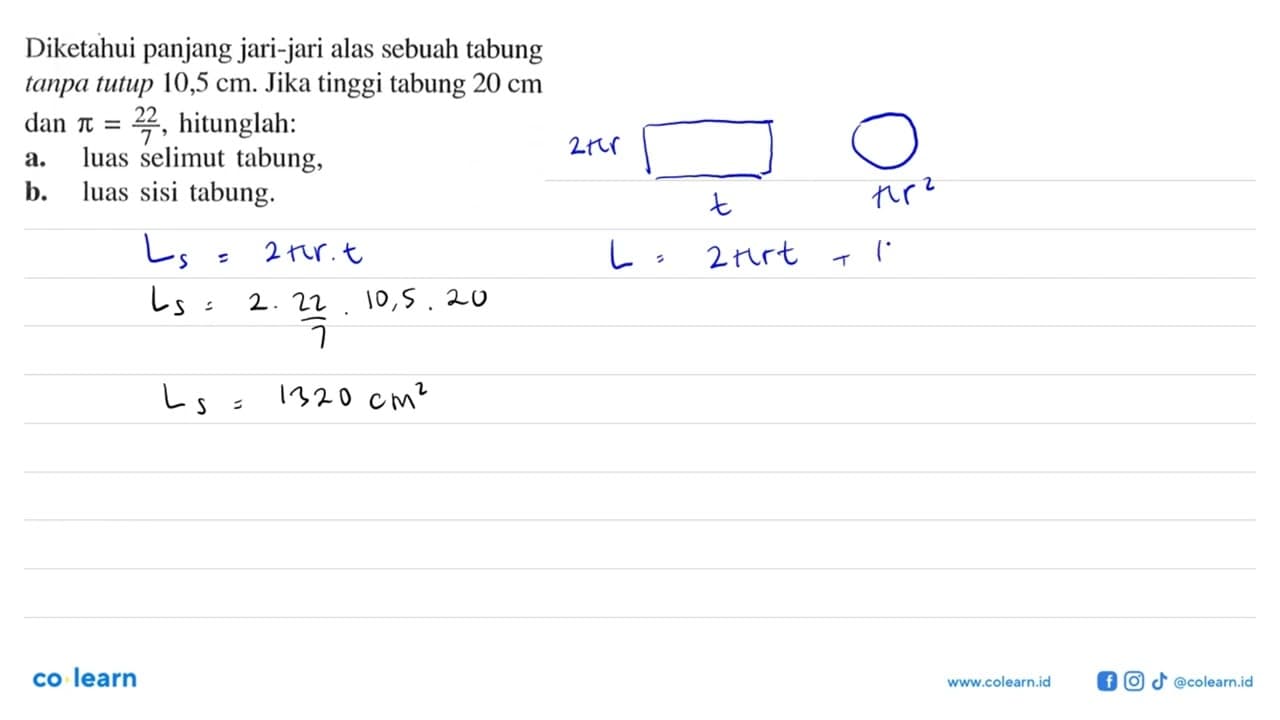 Diketahui panjang jari-jari alas sebuah tabung
tanpa tutup 10,5 cm. Jika tinggi tabung 20 cm
dan π = 22/7, hitunglah:
a. luas selimut tabung,
b. luas sisi tabung.
2πr
t
πr²
Ls = 2πr.t
Ls = 2. 22/7 . 10,5 . 20
Ls = 1320 cm²
L = 2πrt +
co learn
www.colearn.id
@colearn.id